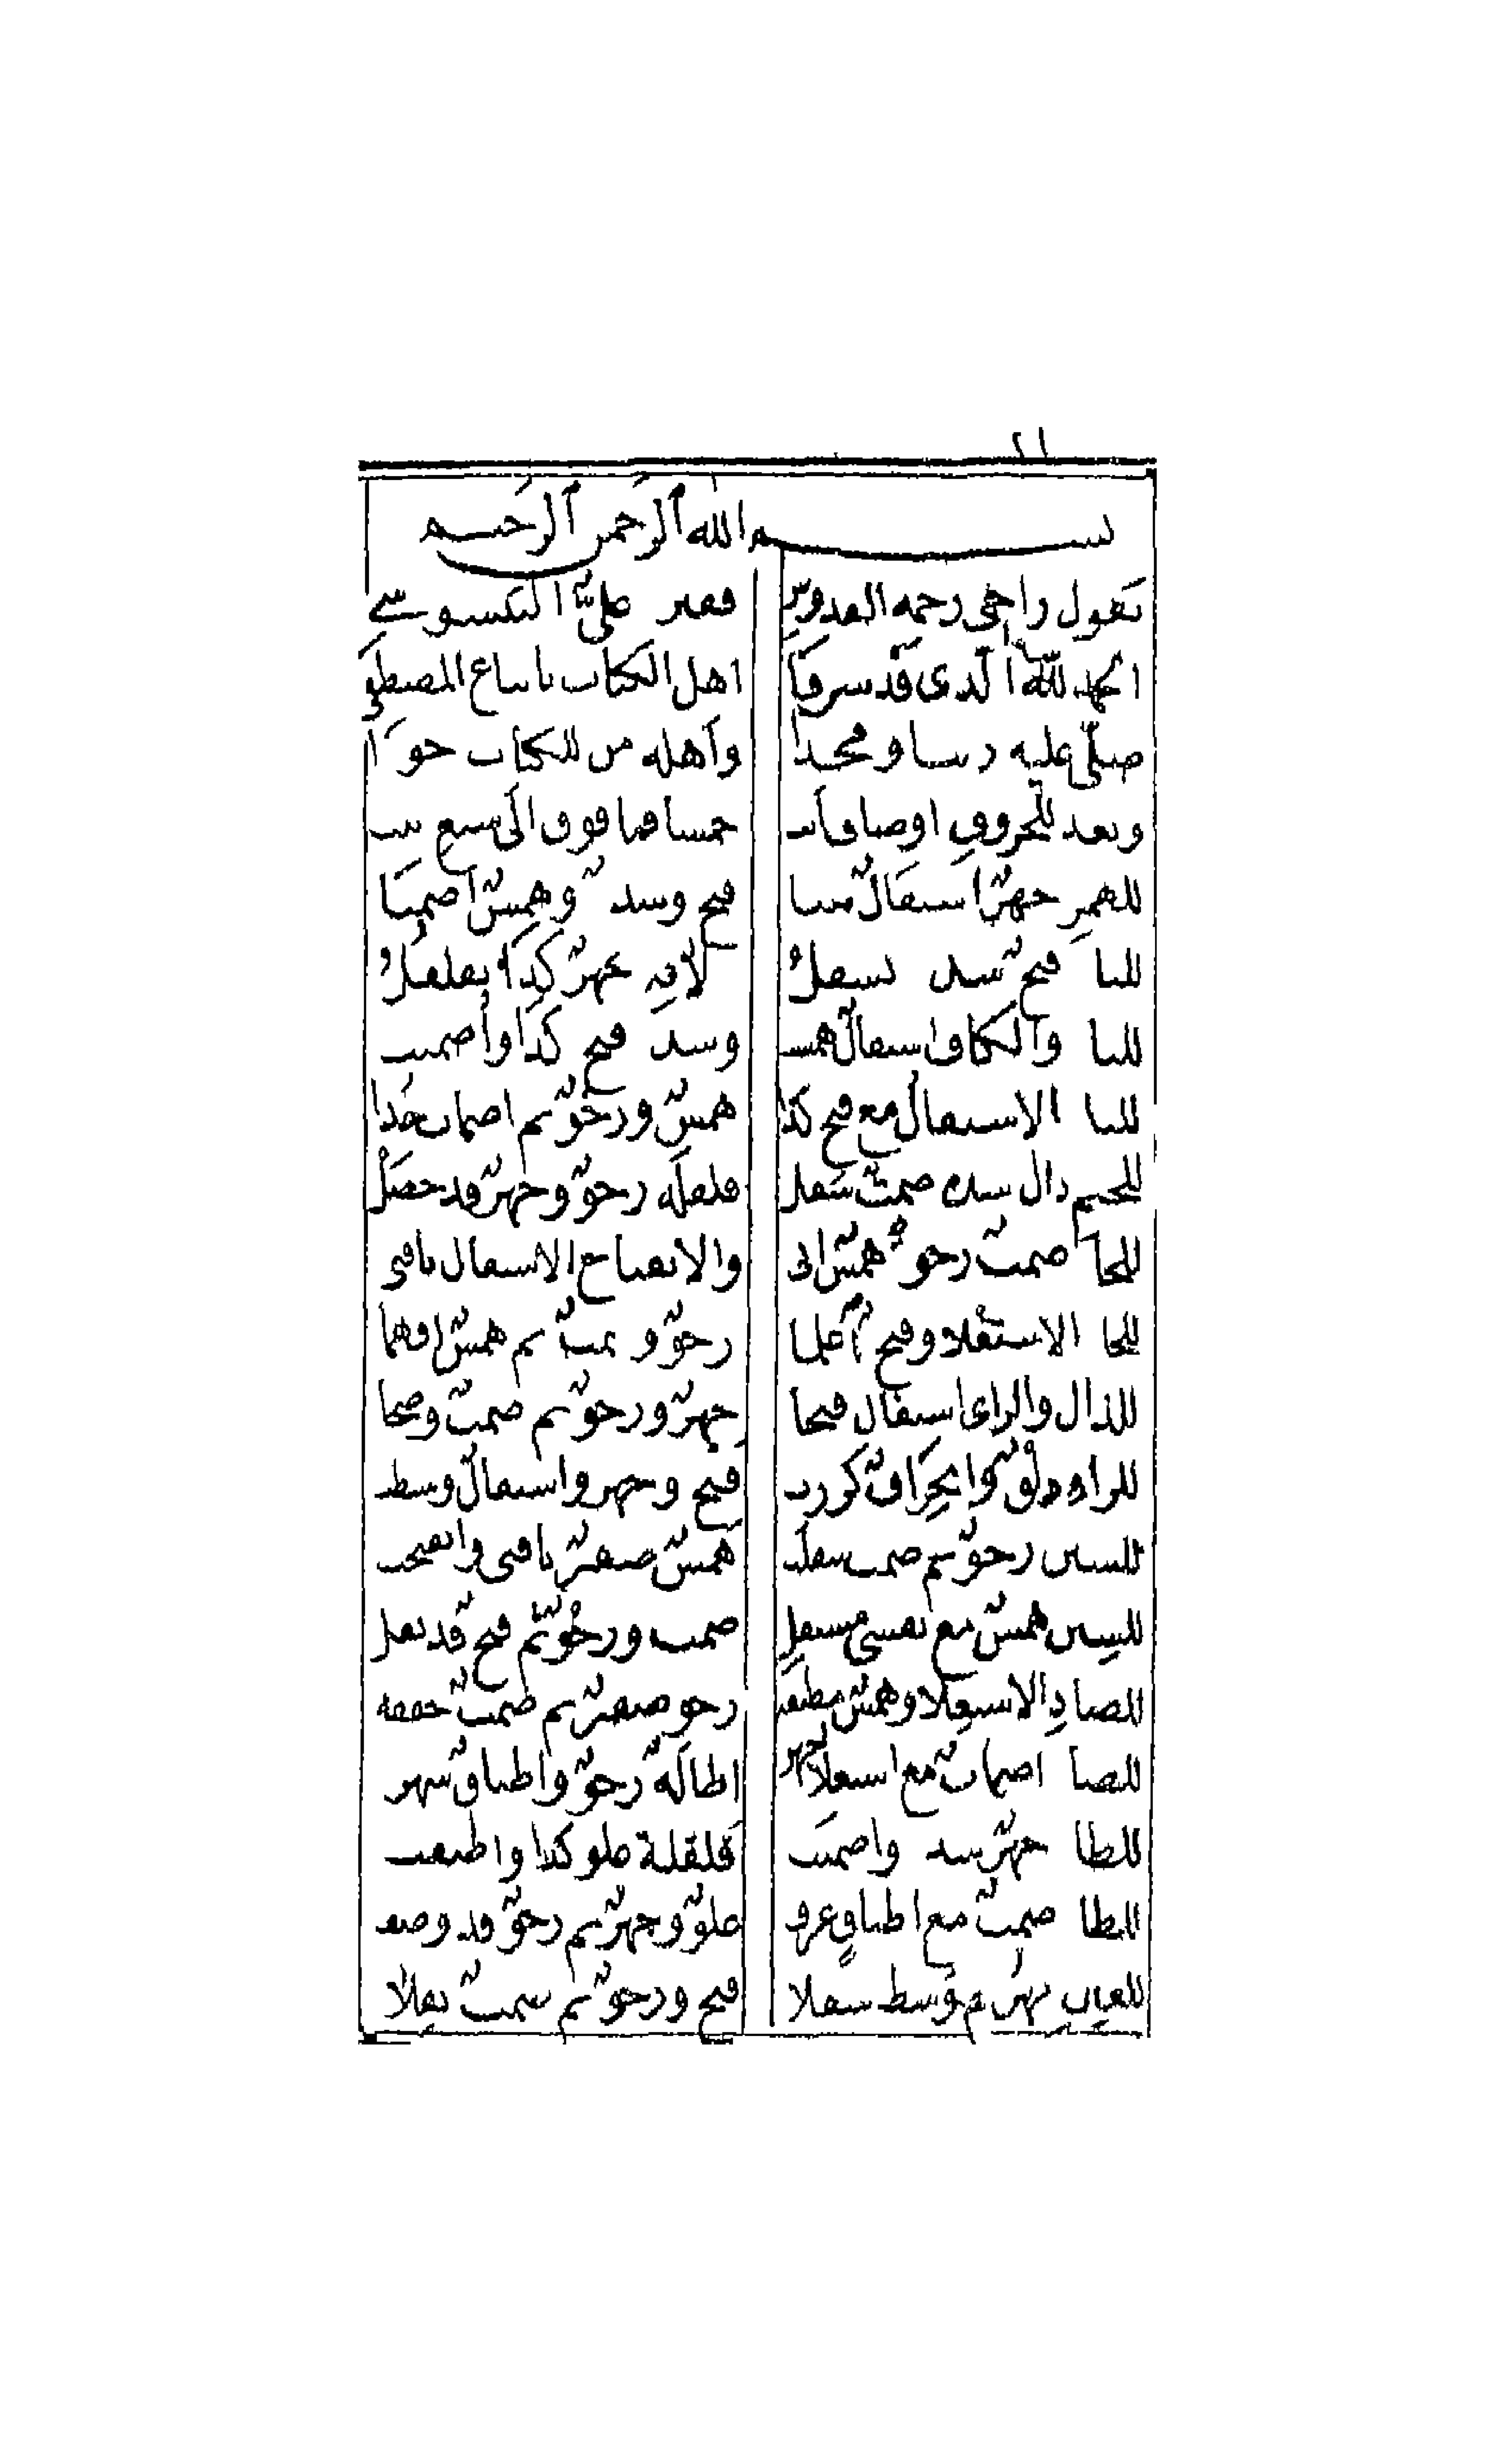 ٢١
بسم الله الرحمن الرحيم
يقول راجي رحمة القدوس فقير على السنوسي
الحمد لله الذي قد شرفا اهل الكتاب باتباع المصطفى
صلى عليه ربنا ومجدا وآهله من للكتاب جودا
وبعد للحروف اوصاف أتت خمسا فما فوق الى سبع ثبت
للهمز جهر استفال ثبتا فتح وشد وهمس اصمتا
للبا فتح شد تسفل لانه جهر كذا يقلقل
للتا والكاف استفال همس وشد فتح كذا واصمت
للثا الاستفال مع فتح كذا همس ورخو ثم اصمات خذا
للجيم دال شدة صمت سفل قلقلة رخو وجهر قد حصل
للحا صمت رخو همس اتى والانفتاح الاستفال يا فتى
للخا الاستعلا وفتح اعلما رخو وصمت ثم همس افهما
للذال والزاي استفال فتحا جهر ورخو ثم صمت وضحا
للراء ذلق وانحراف كررت فتح وجهر واستفال وسطت
للسين رخو ثم صمت سفلت همس صفير يا فتى وانفتحت
للشين همس مع تفشي مستفل صمت ورخو ثم فتح قد نقل
للصاد الاستعلا وهمس مطبقه رخو صفير ثم صمت حققه
للضا اصمات مع استعلا جهر اطالة رخو واطباق شهر
للطا جهر شد واصمت قلقلة علو كذا واطبقت
للظا صمت مع اطباق عرف علو وجهر ثم رخو قد وصف
للعين جهر ثم وسط سفلا فتح ورخو ثم صمت نقلا